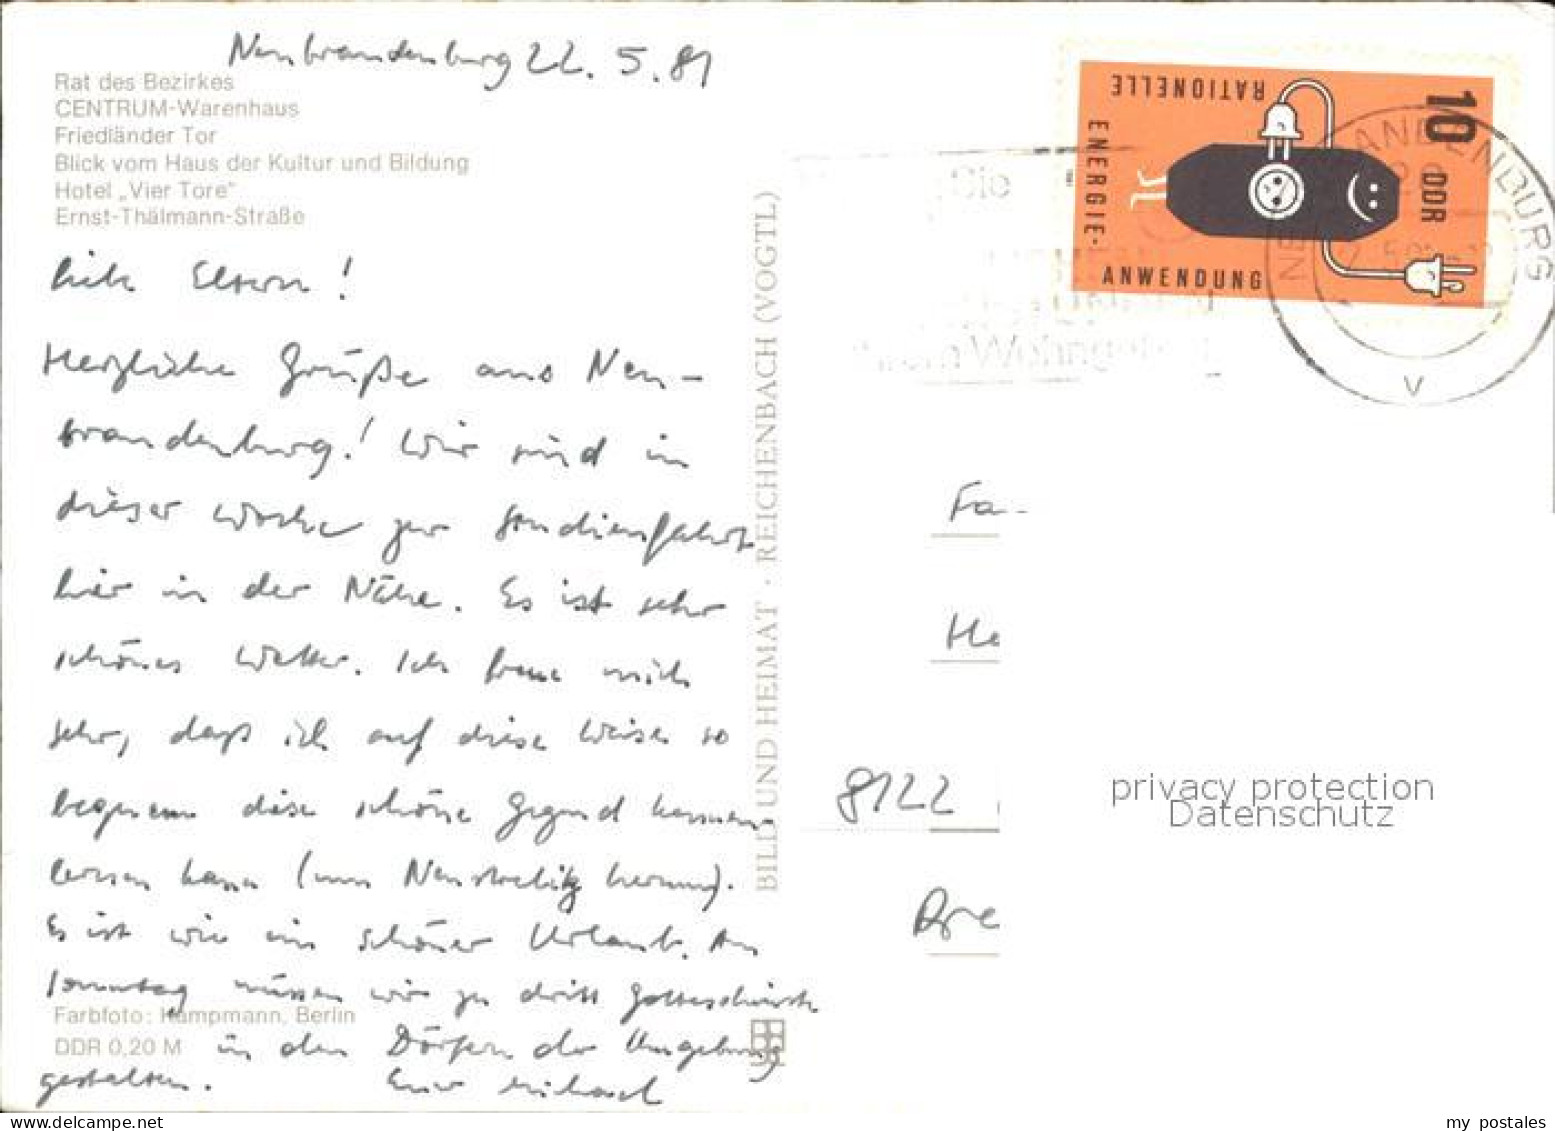 Neubrandenburg 22. 5. 81
Rat des Bezirkes
CENTRUM-Warenhaus
Friedländer Tor
Blick vom Haus der Kultur und Bildung
Hotel „Vier Tore“
Ernst-Thälmann-Straße
Liebe Eltern!
Herzliche Grüße aus Neu-
brandenburg! Wir sind in
dieser Woche zur Studienfahrt
hier in der Nähe. Es ist sehr
schönes Wetter. Ich freue mich
sehr, daß ich auf diese Weise so
bequem diese schöne Gegend kennen-
lernen kann (um Neustrelitz herum).
Es ist wie ein schöner Urlaub. Am
Sonntag müssen wir zu dritt Gottesdienste
in den Dörfern der Umgebung
gestalten. Euer Michael
Farbfoto: Kampmann, Berlin
DDR 0,20 M
BILD UND HEIMAT · REICHENBACH (VOGTL)
RATIONELLE
ENERGIE-
ANWENDUNG
10 DDR
Sie
V
Fa
He
8122
privacy protection
Datenschutz
my postales